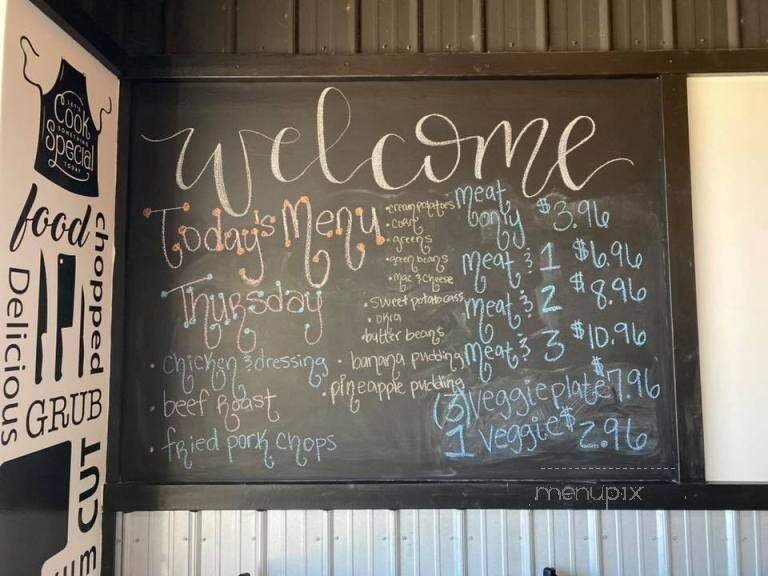 LET'S
Cook
SOMETHING
Special
TODAY
food
chopped
Delicious
GRUB
CUT
Welcome
Today's Menu
Thursday
• chicken & dressing
• beef roast
• fried pork chops
• cream potatoes
• corn
• greens
• green beans
• mac & cheese
• sweet potato cass
• okra
• butter beans
• banana pudding
• pineapple pudding
meat only $3.96
meat & 1 $6.96
meat & 2 $8.96
meat & 3 $10.96
(3) Veggie plate $7.96
1 veggie $2.96
menupix